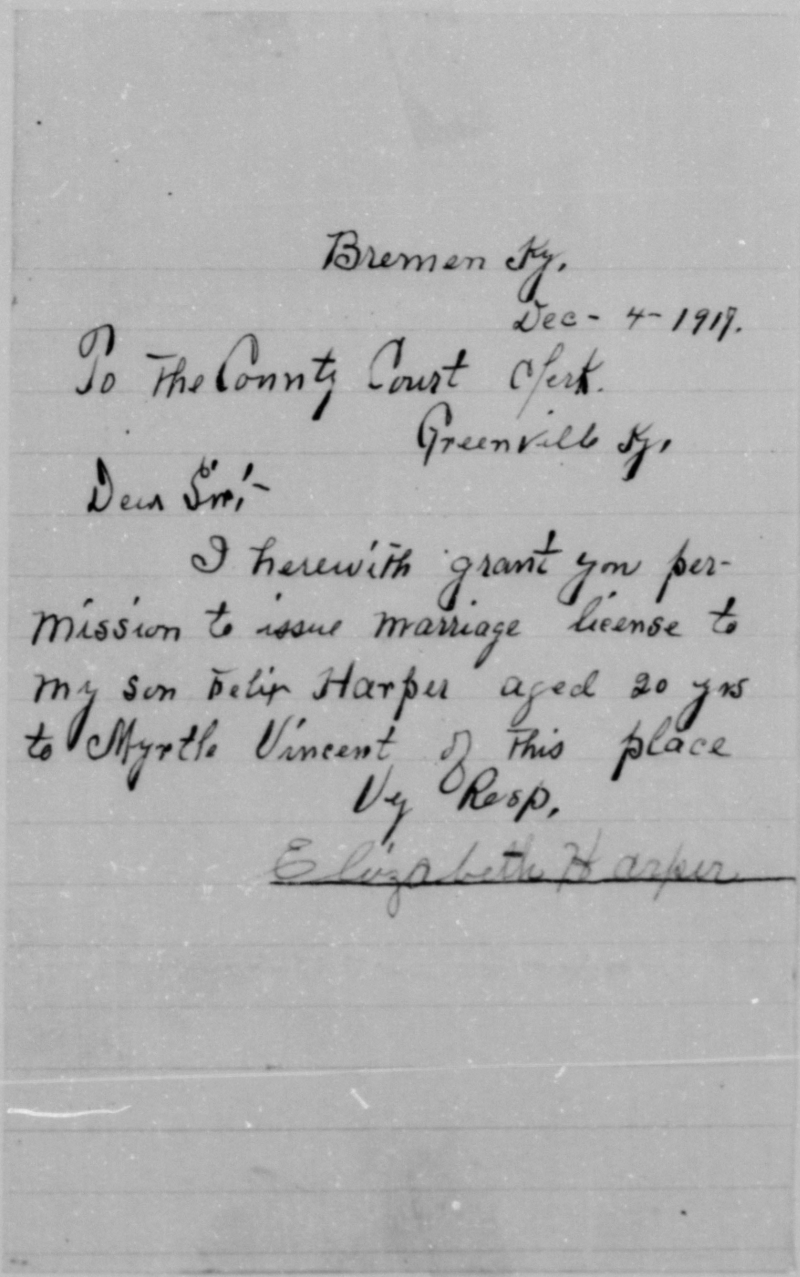 Bremen Ky.
Dec - 4 - 1917.
To The County Court Clerk.
Greenville Ky.
Dear Sir:-
I herewith grant you per-
mission to issue marriage license to
my son Felix Harper aged 20 yrs
to Myrtle Vincent of this place
Vy Resp.
Elizabeth Harper